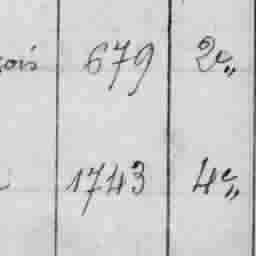 çois 679 2e„
1743 4e„